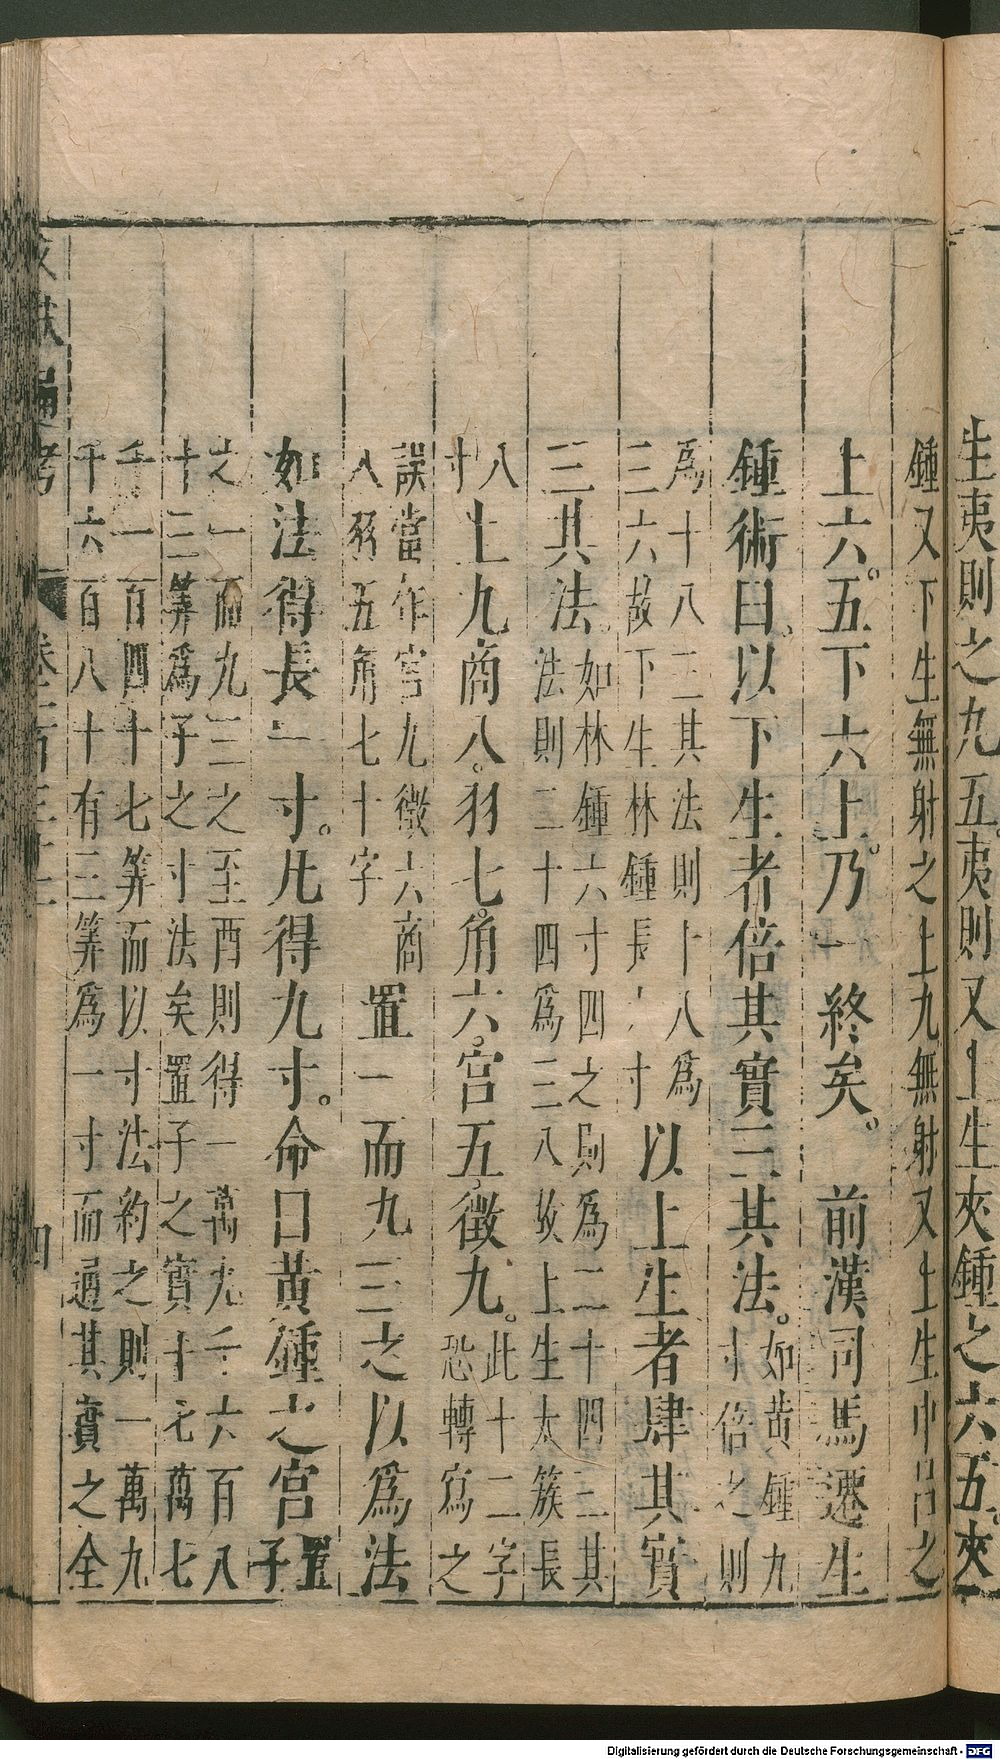 生夷則之九五夷則又上生夾鍾之六五。夾
鍾又下生無射之上九無射又上生中呂之
上六。五下六上。乃一終矣。　前漢司馬遷生
鍾術曰。以下生者倍其實三其法。如黃鍾九
寸倍之則
爲十八三其法則十八爲
三六故下生林鍾長六寸以上生者肆其實
三其法。如林鍾六寸四之則爲二十四三其
法則二十四爲三八故上生太簇長
八
寸上九商八。羽七。角六。宮五。徵九。此十二字
恐轉寫之
誤當作宮九徵六商
八羽五角七十字置一而九三之以爲法
如法得長一寸。凡得九寸。命曰黃鍾之宮置
子
之一而九三之至酉則得一萬九千六百八
十三筭爲子之寸法矣置子之實十七萬七
千一百四十七筭而以寸法約之則一萬九
千六百八十有三筭爲一寸而通其實之全
文獻通考　卷一百三十一　四